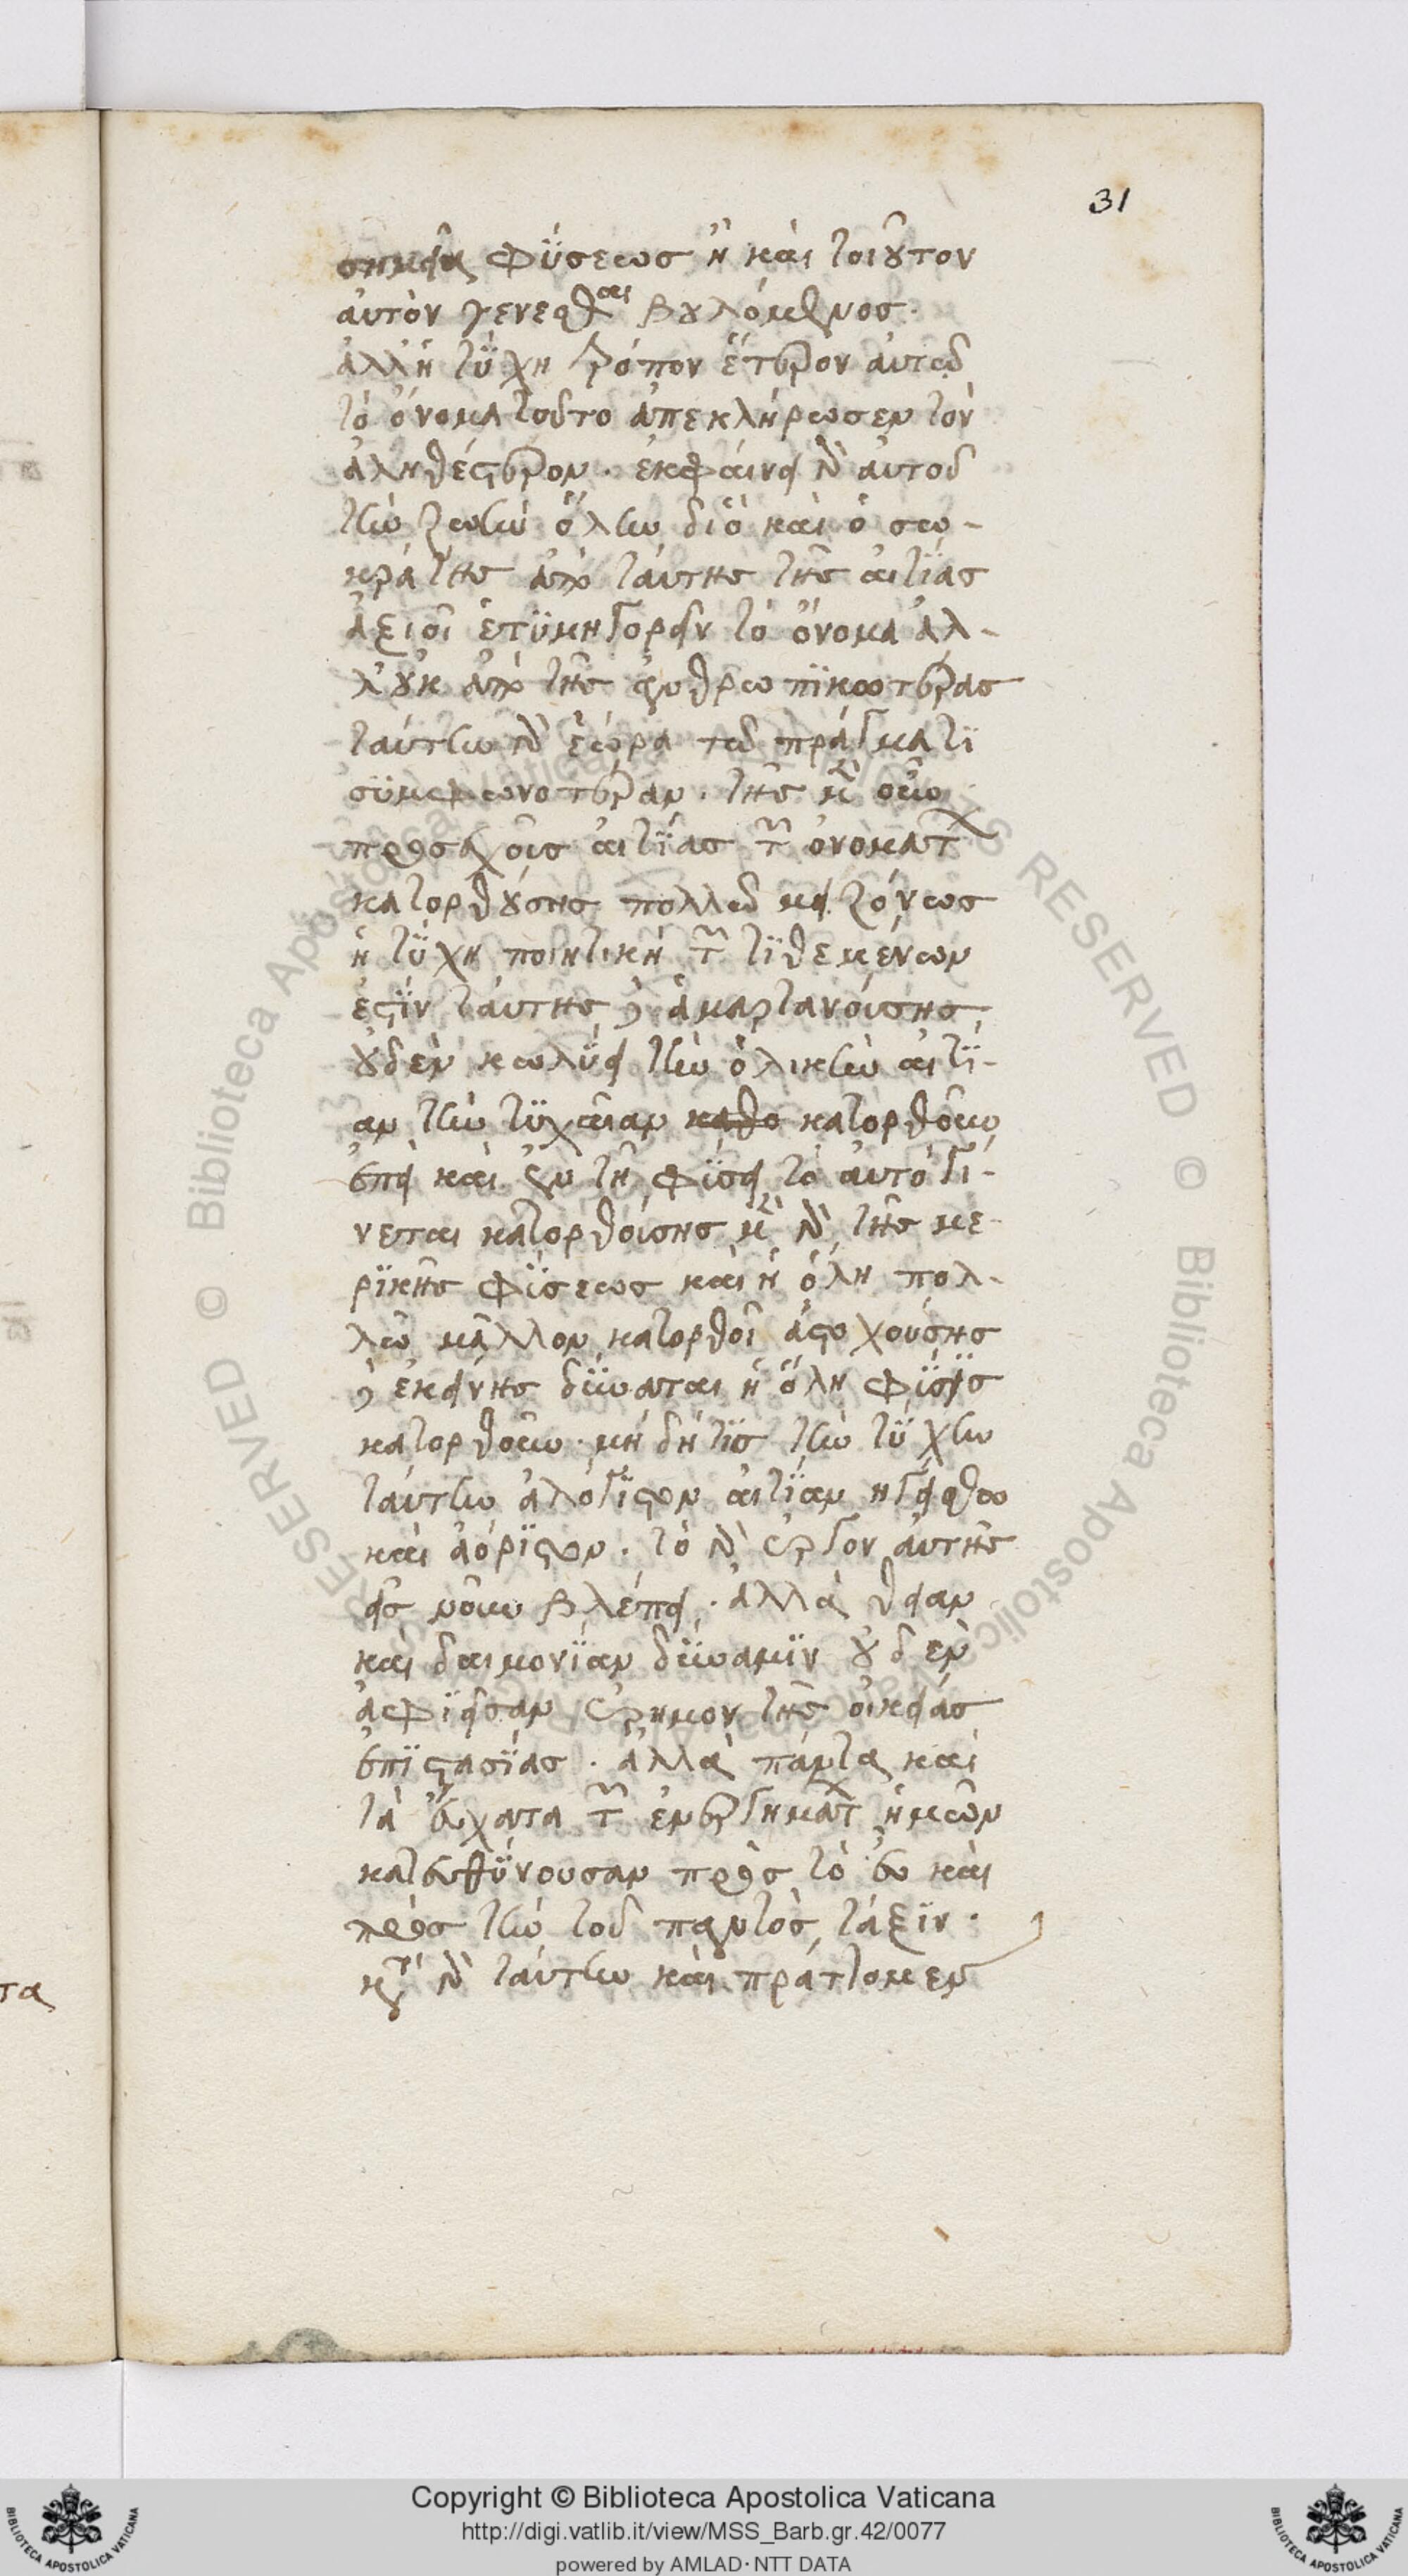 31
σημεῖα φύσεως ἢ καὶ τοιοῦτον
αὐτὸν γενέσθαι βουλόμενος.
ἀλλ' ἡ τύχη τρόπον ἕτερον αὐτῷ
τὸ ὄνομα τοῦτο ἀπεκλήρωσεν τὸν
ἀληθέστερον. ἐκφαίνει δὲ αὐτοῦ
τὴν ζωὴν ὅλην διὸ καὶ ὁ σω-
κράτης ἀπὸ ταύτης τῆς αἰτίας
ἀξιοῖ ἐτυμηγορεῖν τὸ ὄνομα ἀλ-
λ' οὐκ ἀπὸ τῆς ἀνθρωπικωτέρας
ταύτην δὲ ἑώρα τῷ πράγματι
συμφωνοτέραν. τῆς μὲν οὖν
προσεχοῦς αἰτίας τῶν ὀνομάτων
κατορθούσης πολλῷ μειζόνως
ἡ τύχη ποιητικὴ τῶν τιθεμένων
ἐστὶν ταύτης δὲ ἁμαρτανούσης
οὐδὲν κωλύει τὴν ὁλικὴν αἰτί-
αν τὴν τυχαίαν κατορθοῦν
ἐπεὶ καὶ ἐν τῇ φύσει τὸ αὐτὸ γί-
νεται κατορθούσης μὲν δὲ τῆς με-
ρικῆς φύσεως καὶ ἡ ὅλη πολ-
λῷ μᾶλλον κατορθοῖ ἀστοχούσης
δὲ ἐκείνης δύναται ἡ ὅλη φύσις
κατορθοῦν. μὴ δή τις τὴν τύχην
ταύτην ἀλόγιστον αἰτίαν ἡγείσθω
καὶ ἀόριστον. τὸ δὲ ἔργον αὐτῆς
εἰς νοῦν βλέπει. ἀλλὰ θείαν
καὶ δαιμονίαν δύναμιν οὐδὲν
ἀφιεῖσαν ἔρημον τῆς οἰκείας
ἐπιστασίας. ἀλλὰ πάντα καὶ
τὰ ἔσχατα τῶν ἐνεργημάτων ἡμῶν
κατευθύνουσαν πρὸς τὸ εὖ καὶ
πρὸς τὴν τοῦ παντὸς τάξιν.
κατὰ δὲ ταύτην καὶ πράττομεν
τα
Copyright © Biblioteca Apostolica Vaticana
http://digi.vatlib.it/view/MSS_Barb.gr.42/0077
powered by AMLAD·NTT DATA